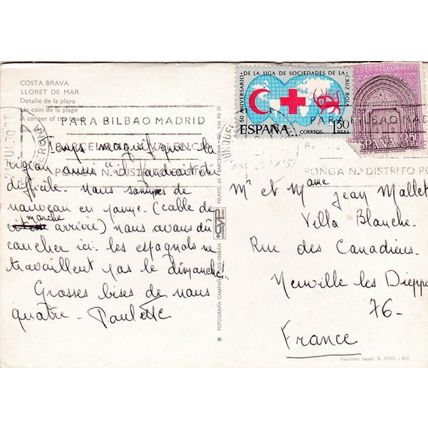 COSTA BRAVA
LLORET DE MAR
Detalle de la playa
Un coin de la plage
A corner of the
50 ANIVERSARIO DE LA LIGA DE SOCIEDADES DE LA CRUZ ROJA
ESPAÑA CORREOS 1'50 PTAS
ESPAÑA
PARA BILBAO MADRID
PONGA N.º DISTRITO PO
Temps magnifique la
région aussi
difficile. nous sommes de
nouveau en panne (calle de
marche arrière) nous avons dû
coucher ici. les espagnols ne
travaillent pas le dimanche!
Grosses bises de nous
quatre. Paulette
FOTOGRAFÍA CAMPAÑÁ-PUIG FERRÁN
Mr et Mme Jean Mallet
Villa Blanche.
Rue des Canadiens.
Neuville les Dieppe
76-
France
Depósito Legal, B.